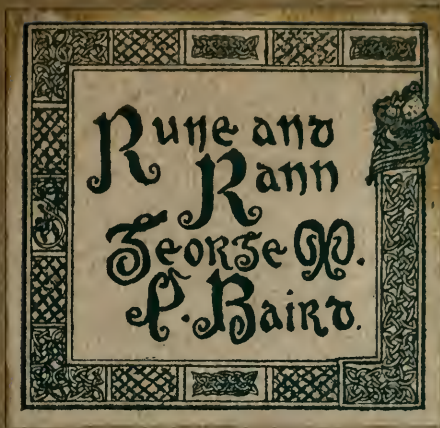 Rune and
Rann
George M.
P. Baird.